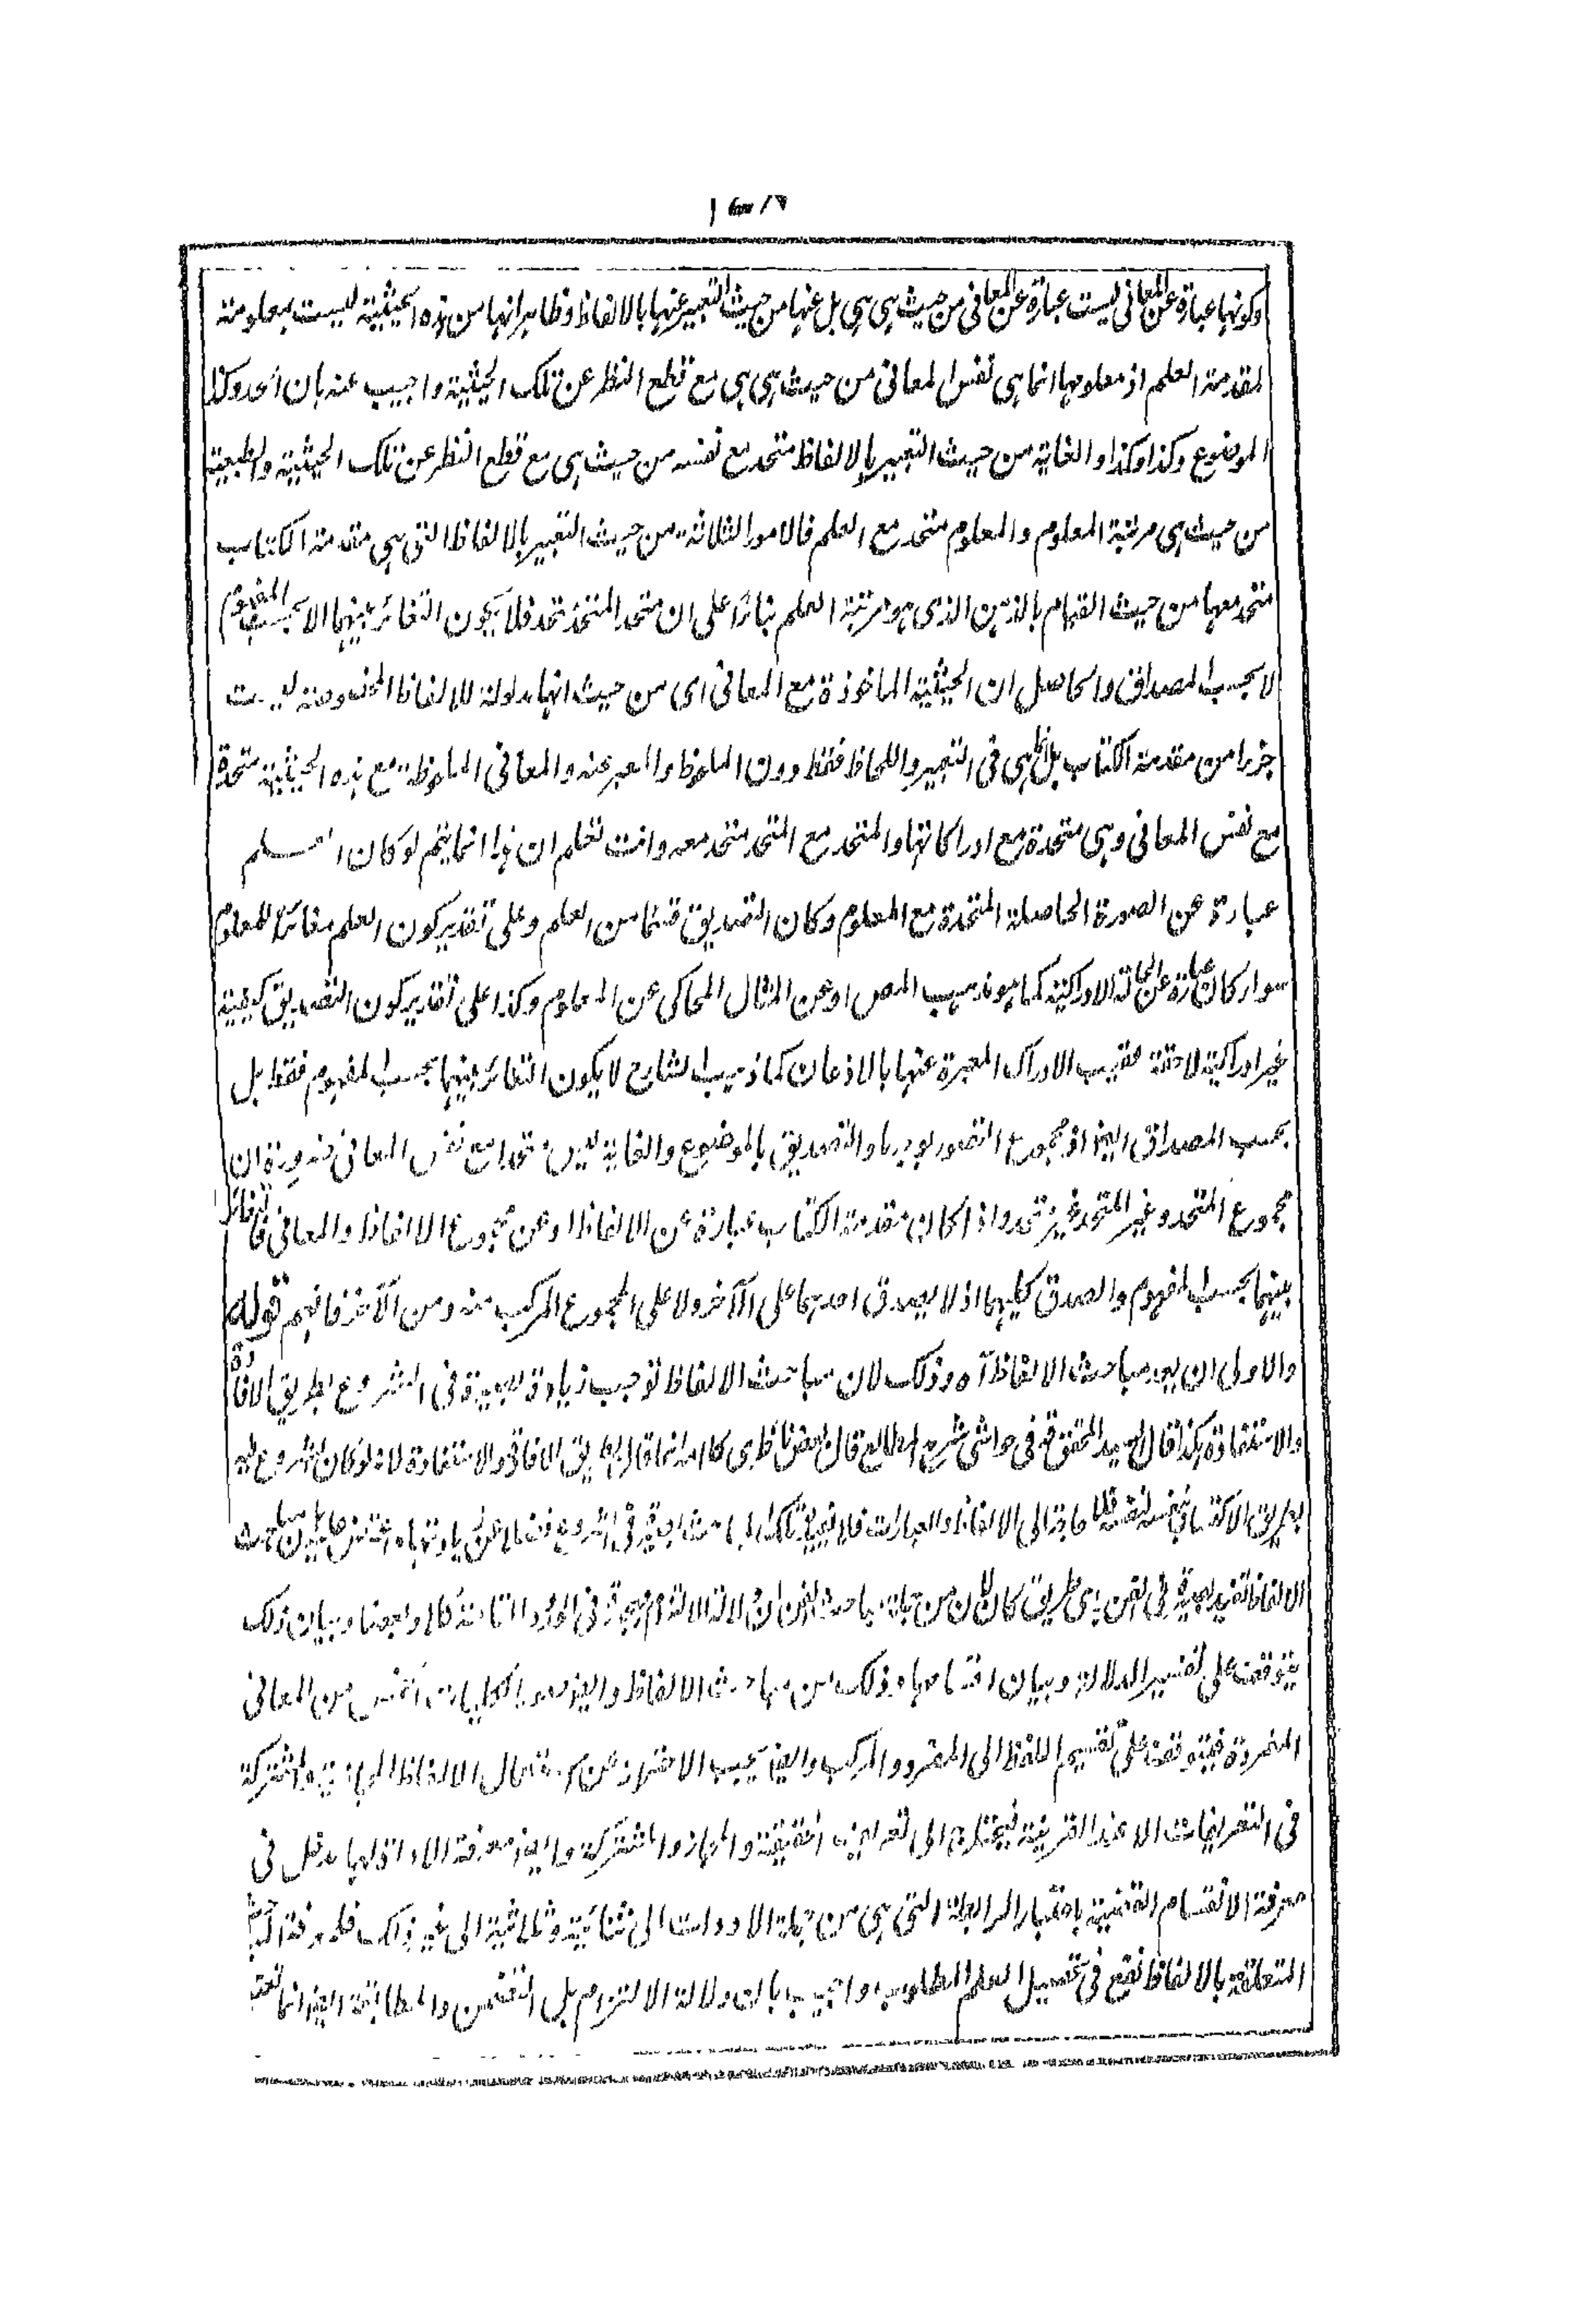 وكونها عبارة عن المعانى ليست عبارة عن المعانى من حيث هى هى بل عنها من حيث التعبير عنها بالالفاظ وظاهر انها من هذه الحيثية ليست بمعلومة
لمقدمة العلم اذ معلومها انما هى نفس المعانى من حيث هى هى مع قطع النظر عن تلك الحيثية واجيب عنه بان الحد وكذا
الموضوع وكذا وكذا والغاية من حيث التعبير بالالفاظ متحد مع نفسه من حيث هى مع قطع النظر عن تلك الحيثية والطبيعة
من حيث هى مرتبة المعلوم والمعلوم متحد مع العلم فالامور الثلاثة من حيث التعبير بالالفاظ التى هى مقدمة الكتاب
متحد معها من حيث القيام بالذهن الذى هو مرتبة العلم بناءً على ان متحد المتحد متحد فلا يكون التغائر بينهما الا بحسب المفهوم
لا بحسب المصداق والحاصل ان الحيثية الماخوذة مع المعانى اى من حيث انها مدلولة للالفاظ المخصوصة ليست
جزءا من مقدمة الكتاب بل انما هى فى التعبير واللحاظ فقط دون الملحوظ والمعبر عنه والمعانى الملحوظة مع هذه الحيثية متحدة
مع نفس المعانى وهى متحدة مع ادراكاتها والمتحد مع المتحد متحد معه وانت تعلم ان هذا انما يتم لو كان العلم
عبارة عن الصورة الحاصلة المتحدة مع المعلوم وكان التصديق قسما من العلم وعلى تقدير كون العلم مغائرا للمعلوم
سواء كان عبارة عن الحالة الادراكية كما هو مذهب المص او عن المثال المحاكى عن المعلوم وكذا على تقدير كون التصديق كيفية
غير ادراكية لاحقة عقيب الادراك المعبرة عنها بالاذعان كما ذهب الشارح لا يكون التغائر بينهما بحسب المفهوم فقط بل
بحسب المصداق ايضا اذ مجموع التصور بوجه ما والتصديق بالموضوع والغاية ليس متحدا مع نفس المعانى ضرورة ان
مجموع المتحد وغير المتحد غير متحد واذا كان مقدمة الكتاب عبارة عن الالفاظ او عن مجموع الالفاظ والمعانى فالتغائر
بينهما بحسب المفهوم والصدق كليهما اذ لا يصدق احدهما على الآخر ولا على المجموع المركب منه ومن الآخر فافهم قوله
والاولى ان يعد مباحث الالفاظ آه وذلك لان مباحث الالفاظ توجب زيادة بصيرة فى الشروع بطريق الافادة
والاستفادة هكذا قال السيد المحقق قه فى حواشى شرح المطالع قال بعض ناظرى كلامه انما قال بطريق الافادة والاستفادة لانه لو كان الشروع فيه
بطريق الاكتساب بنفسه لنفسه فلا حاجة الى الالفاظ والعبارات
الالفاظ تفيد بصيرة فى الفن باى طريق كان لان من جملة مباحث الفن ان دلالة الالتزام مهجورة فى الحدود التامة كلا وبعضا وبيان ذلك
يتوقف على تفسير الدلالة وبيان اقسامها وذلك من مباحث الالفاظ وايضا الكليات الخمس من المعانى
المفردة فيتوقف على تقسيم اللفظ الى المفرد والمركب وايضا يجب الاحتراز عن استعمال الالفاظ المجازية والمشتركة
فى التعريفات الا عند القرينة فيحتاج الى تعريف الحقيقة والمجاز والمشترك وايضا معرفة الاداة لها دخل فى
معرفة الانقسام القضية باعتبار الرابطة التى هى من جملة الادوات الى ثنائية وثلاثية الى غير ذلك فلمعرفة المباحث
المتعلقة بالالفاظ نفع فى تحصيل العلم المطلوب واجيب بان دلالة الالتزام بل التضمن والمطابقة ايضا انما تعتبر